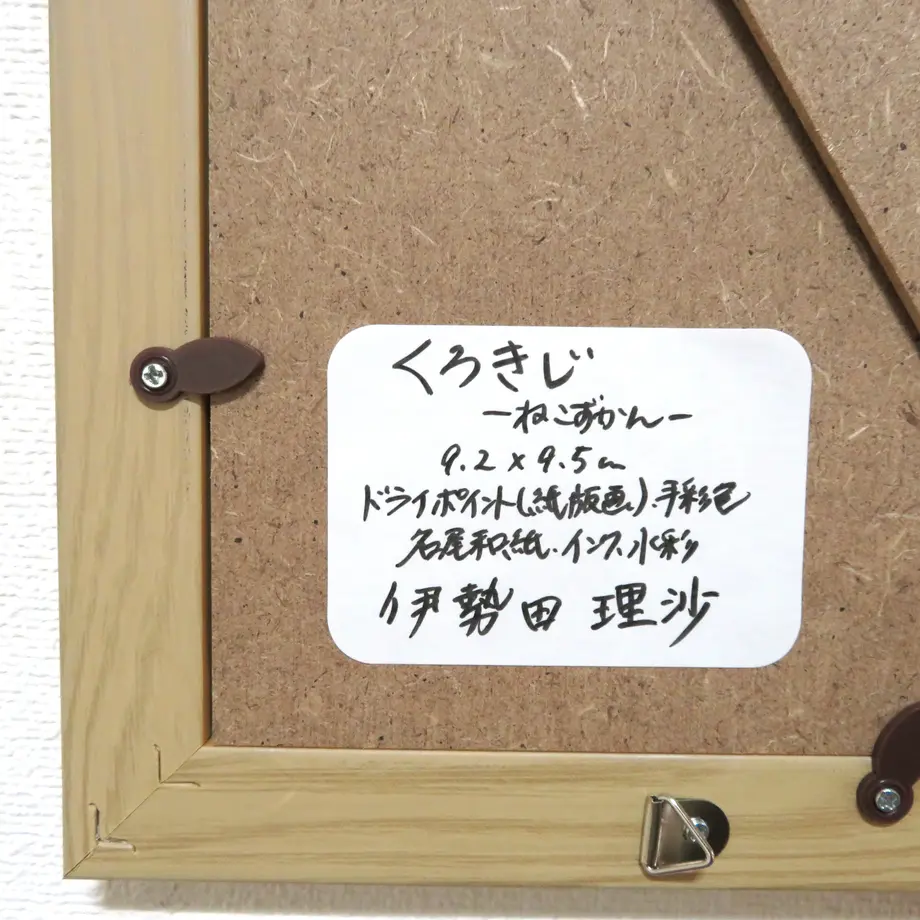 くろきじ
ーねこずかんー
9.2 x 9.5cm
ドライポイント(紙版画)、手彩色
名尾和紙、インク、水彩
伊勢田 理沙